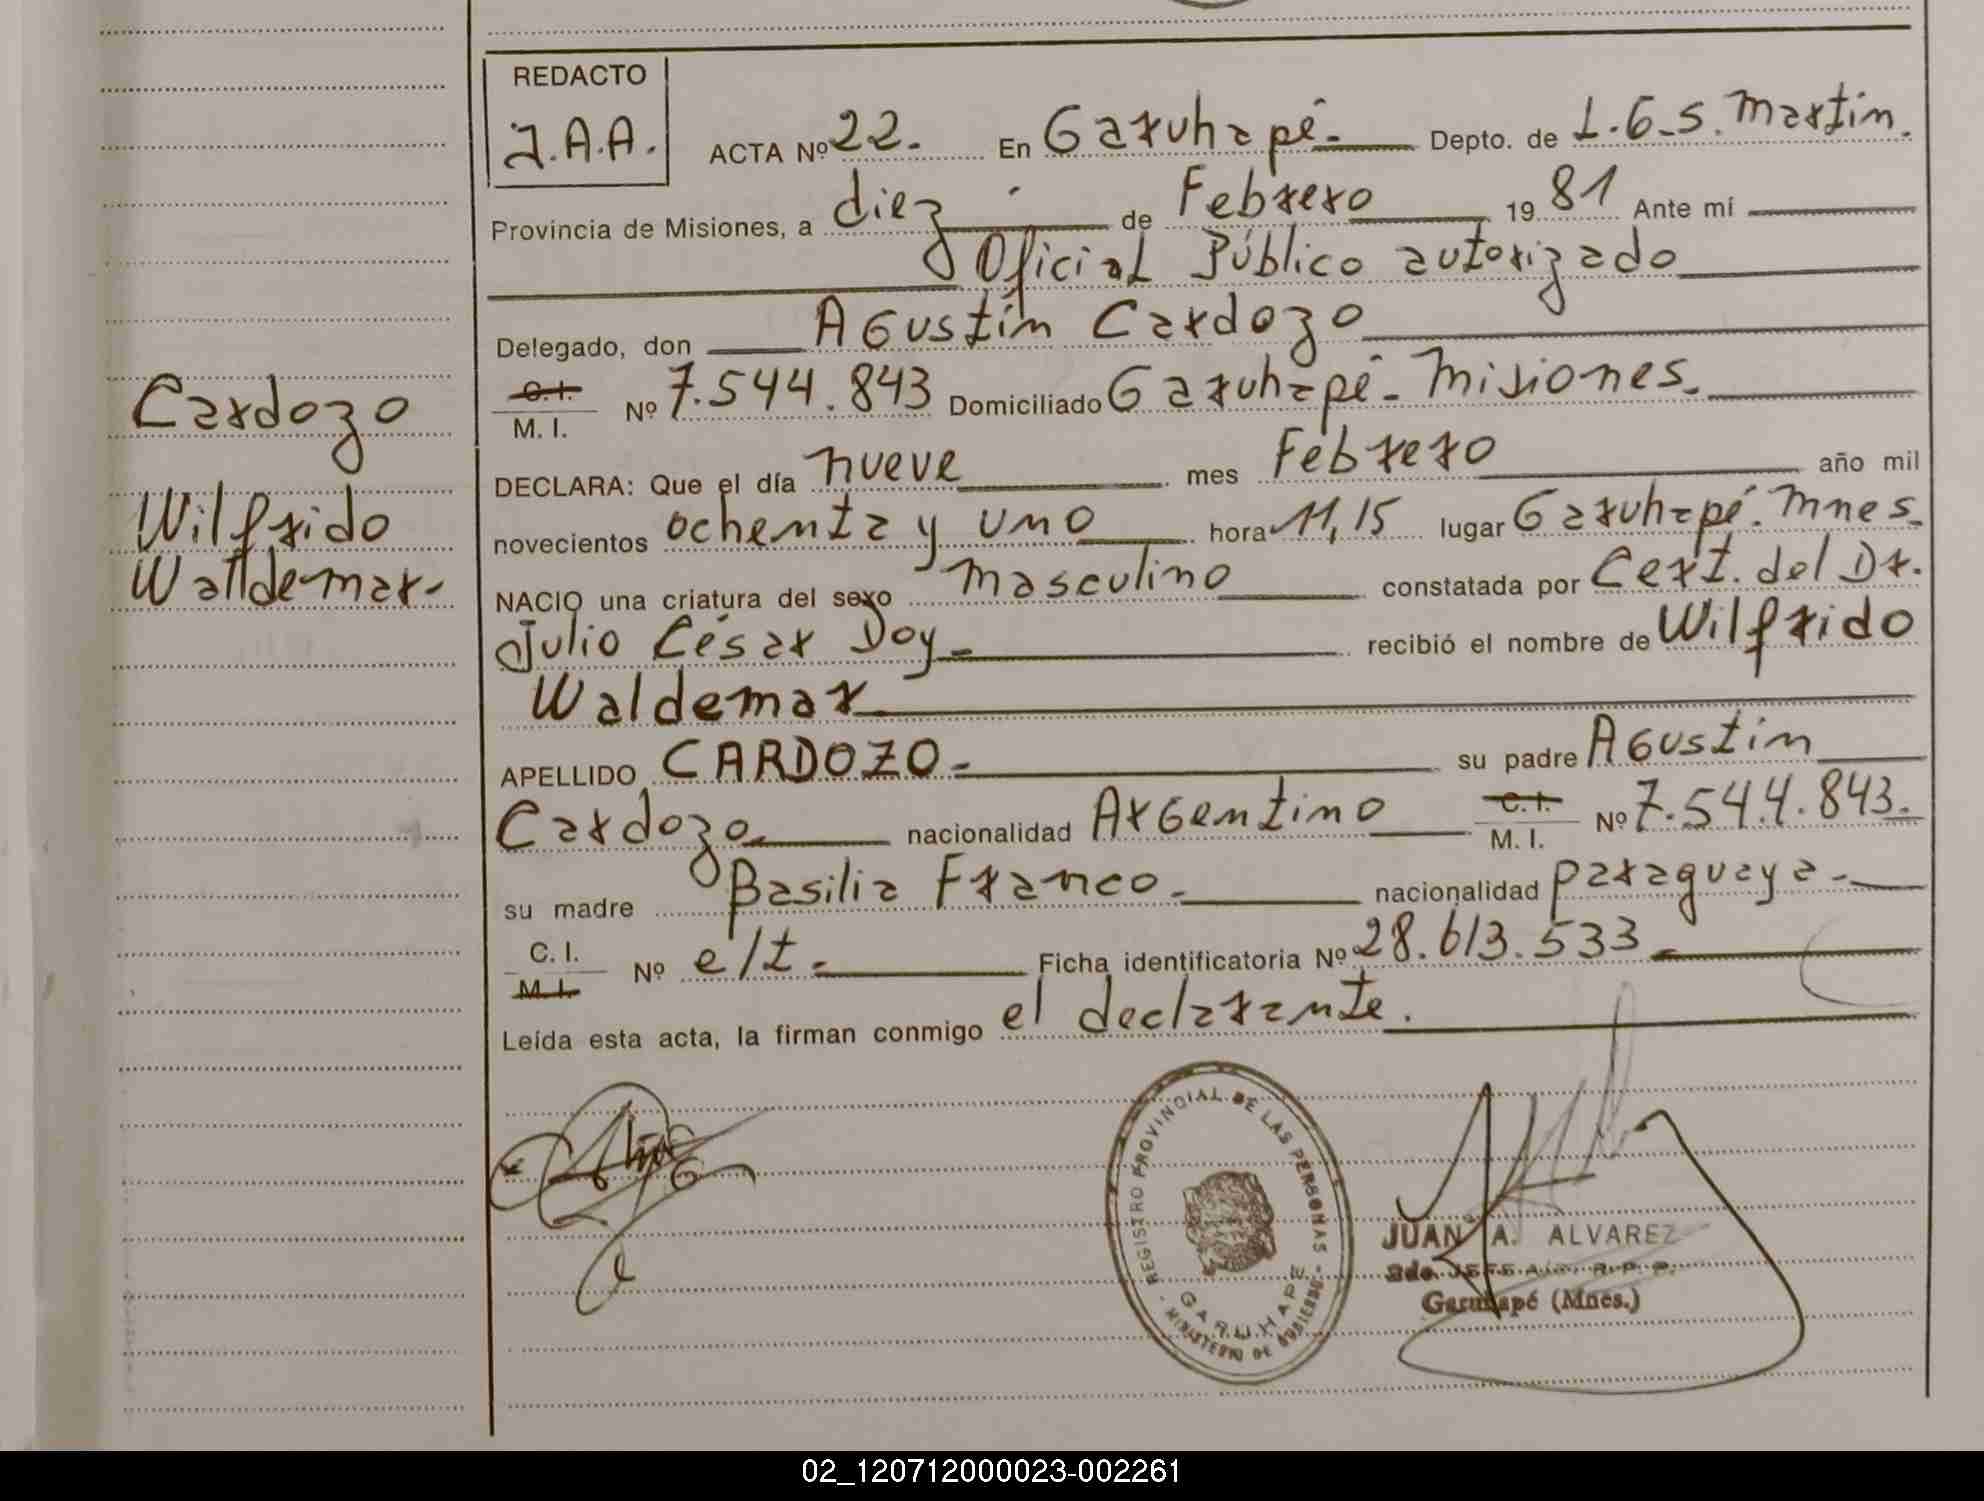 REDACTO
J.A.A.
ACTA Nº 22. En Garuhapé. Depto. de L.G.S. Martín.
Provincia de Misiones, a diez de Febrero 1981 Ante mí
Oficial Público autorizado
Delegado, don Agustín Cardozo
C.I. M. I. Nº 7.544.843 Domiciliado Garuhapé - Misiones.
DECLARA: Que el día nueve mes Febrero año mil
novecientos ochenta y uno hora 11,15 lugar Garuhapé. Mnes.
NACIO una criatura del sexo masculino constatada por Cert. del Dr.
Julio César Doy recibió el nombre de Wilfrido
Waldemar
APELLIDO CARDOZO su padre Agustín
Cardozo nacionalidad Argentino C.I. M. I. Nº 7.544.843.
su madre Basilia Franco nacionalidad paraguaya
C. I. M. I. Nº e/t. Ficha identificatoria Nº 28.613.533
Leída esta acta, la firman conmigo el declarante.
Cardozo
Wilfrido
Waldemar
REGISTRO PROVINCIAL DE LAS PERSONAS
GARUHAPE
MINISTERIO DE GOBIERNO
JUAN A. ALVAREZ
2do. JEFE R. P. P.
Garuhapé (Mnes.)
02_120712000023-002261